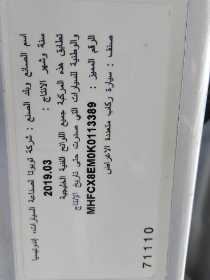 اسم الصانع وبلد الصنع : شركة تويوتا لصناعة السيارات، إندونيسيا
سنة وشهر الإنتاج : 2019.03
تطابق هذه المركبة جميع اللوائح الفنية الخليجية
والوطنية للسيارات التي صدرت حتى تاريخ الإنتاج
الرقم المميز : MHFCX8EM0K0113389
صنف : سيارة ركاب متعددة الاغراض
71110